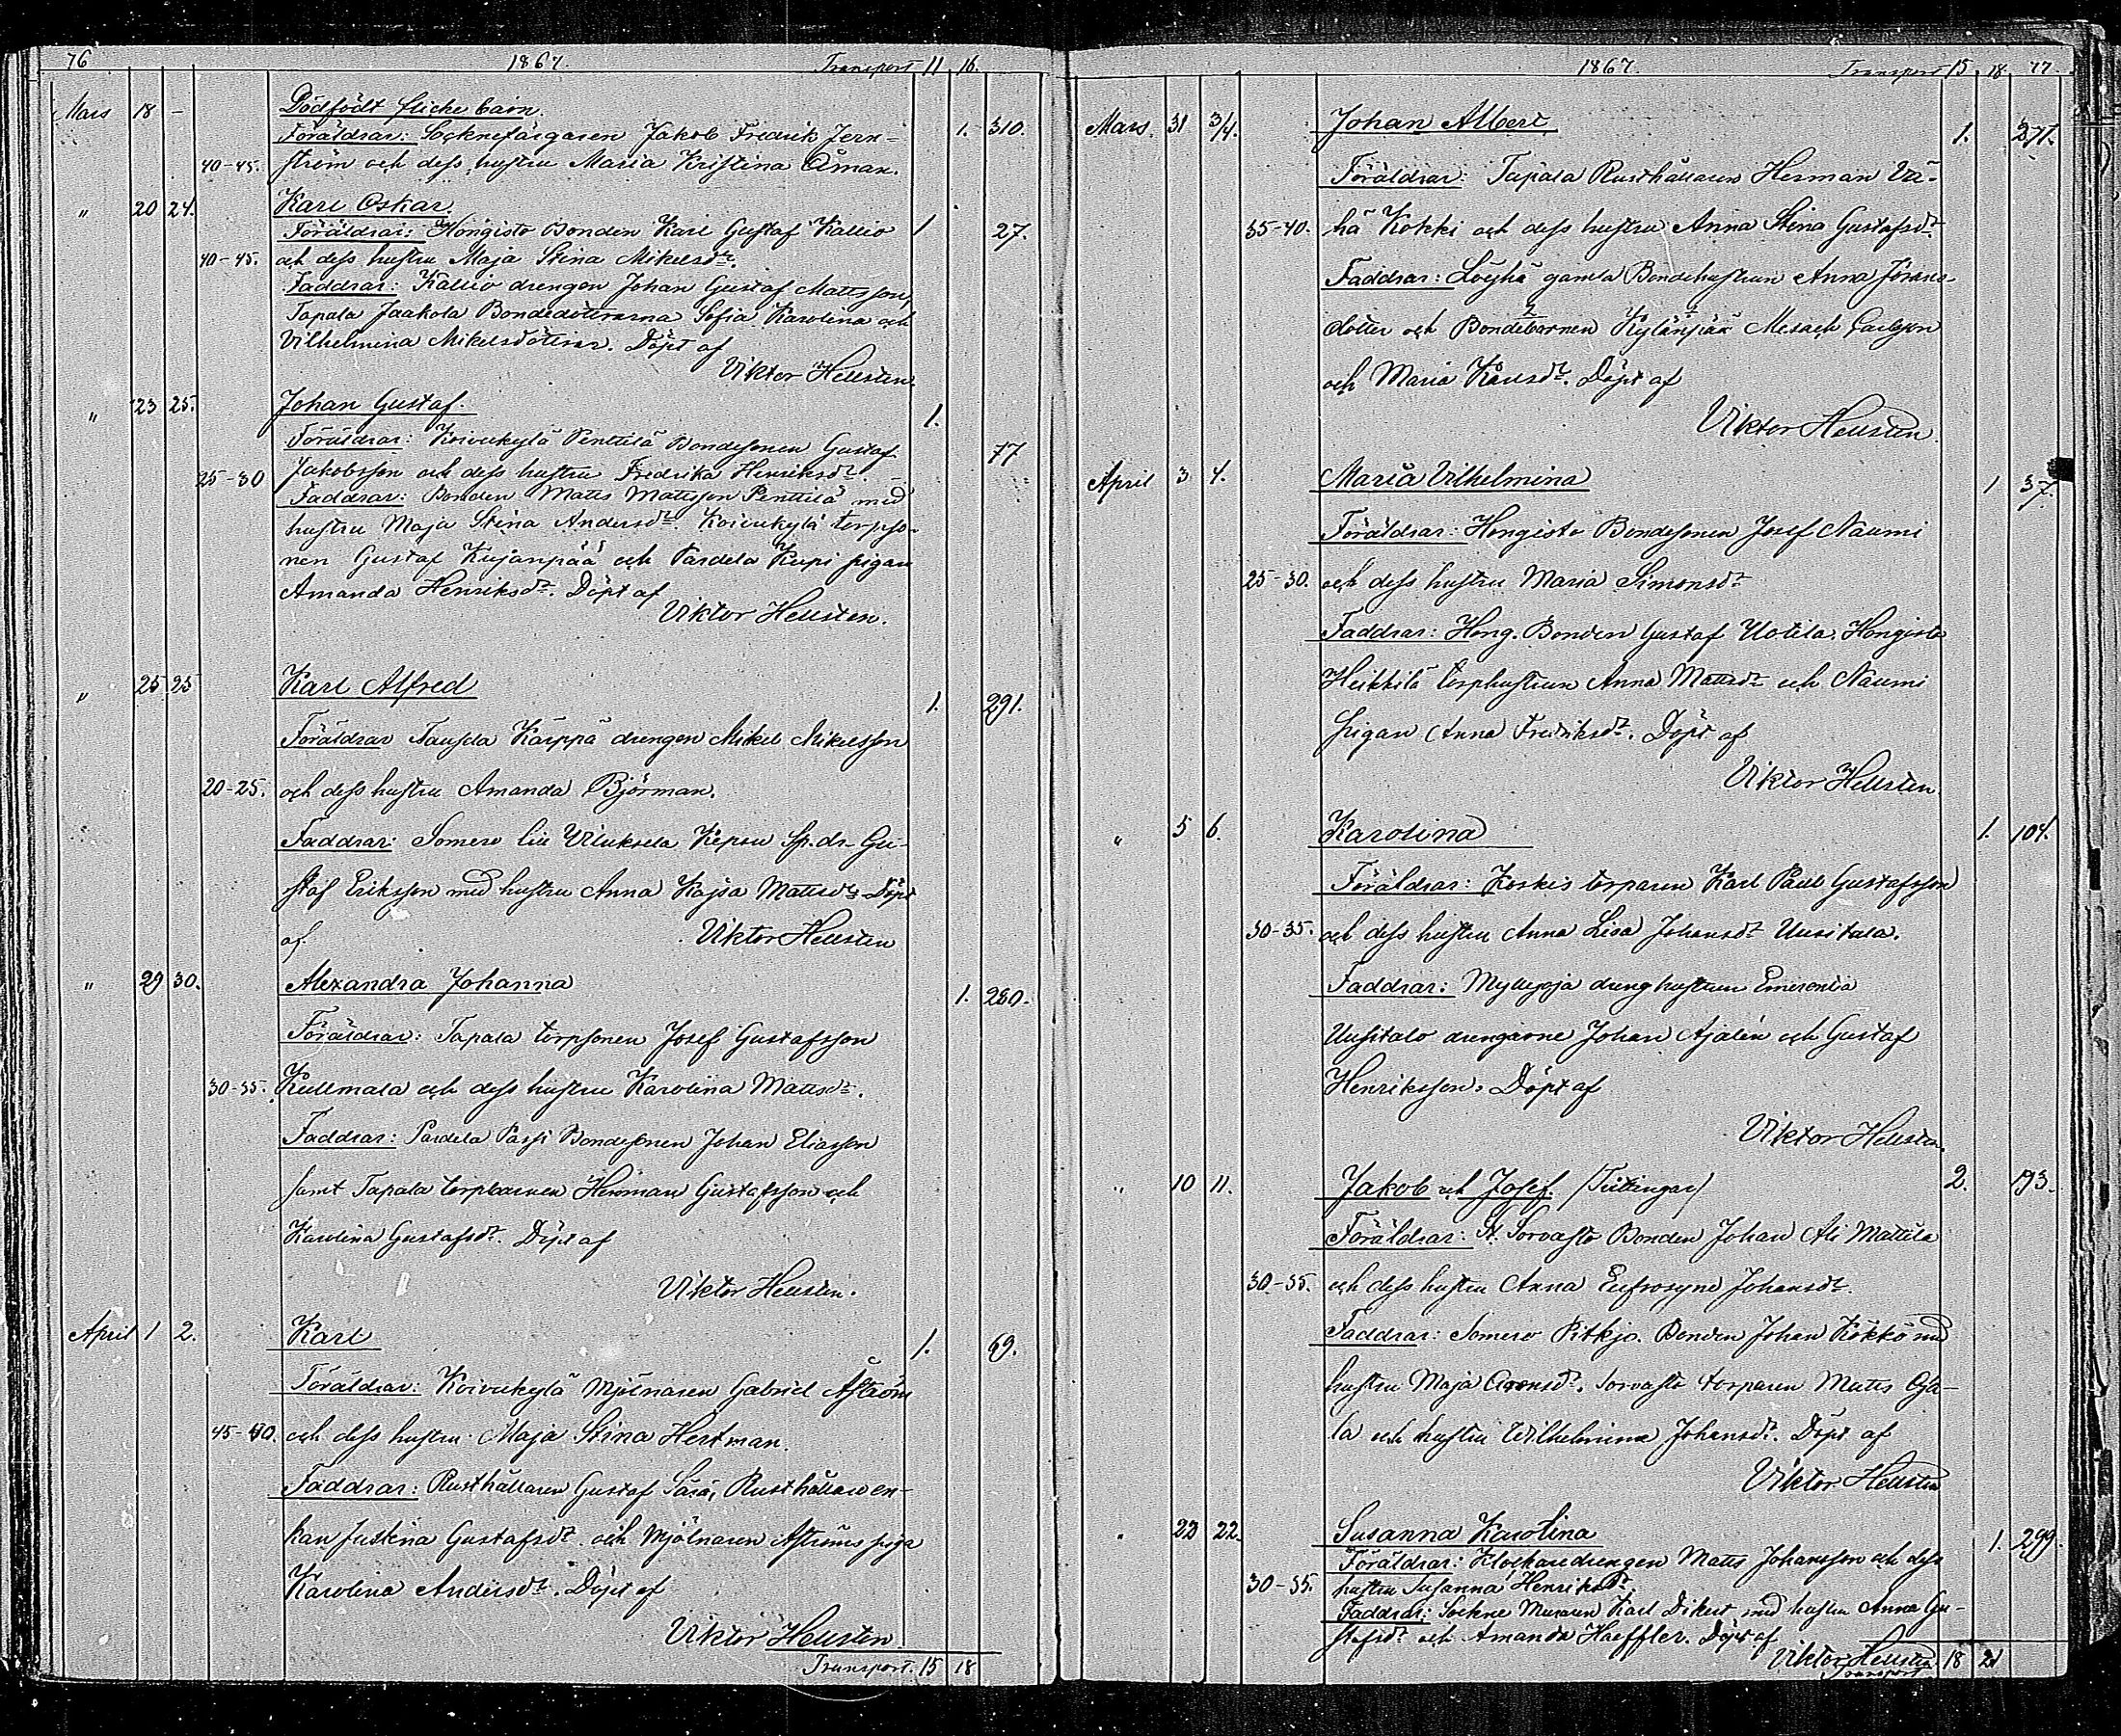 76 1867. Transport 11 16.
Mars 18 - Dödfödt flicke barn.
Föräldrar: Socknefärgaren Jakob Fredrik Jern- 1. 310.
40-45. ström och dess hustru Maria Kristina Öman.
" 20 24. Karl Oskar.
Föräldrar: Hongisto Bonden Karl Gustaf Kallio 1 27.
40-45. och dess hustru Maja Stina Mikelsdr.
Faddrar: Kallio drengen Johan Gustaf Mattsson,
Tapala Jaakola Bondedöttrarna Sofia Karolina och
Vilhelmina Mikelsdöttrar. Döpt af
Viktor Hellsten.
" 23 25. Johan Gustaf. 1.
Föräldrar: Koivukylä Penttilä Bondesonen Gustaf 77
25-30 Jakobsson och dess hustru Fredrika Henriksdr.
Faddrar: Bonden Matts Mattsson Penttilä med
hustru Maja Stina Andersdr. Koivukylä torpso-
nen Gustaf Kujanpää och Pardela Kupi pigan
Amanda Henriksdr. Döpt af
Viktor Hellsten.
" 25 25 Karl Alfred 1. 291.
Föräldrar Kärppä drengen Mikel Mikelsson
20-25. och dess hustru Amanda Björman.
Faddrar: Somero Viluksela Kepsu Gu-
staf Eriksson med hustru Anna Kajsa Mattsdr Döpt
af Viktor Hellsten
" 29 30. Alexandra Johanna 1. 280.
Föräldrar: Tapala torpsonen Josef Gustafsson
30-35. Kullmala och dess hustru Karolina Mattsdr.
Faddrar: Pardela Passi Bondesonen Johan Eliasson
samt Tapala torpbarnen Herman Gustafsson och
Karolina Gustafsdr. Döpt af
Viktor Hellsten.
April 1 2. Karl 1. 69.
Föräldrar: Koivukylä Mjölnaren Gabriel Åström
45-50. och dess hustru Maja Stina Hertman.
Faddrar: Rusthållaren Gustaf Rusthållaren-
kan Justina Gustafsdr. och Mjölnaren Åströms piga
Karolina Andersdr. Döpt af
Viktor Hellsten
Transport. 15 18
1867. Transport 15 18 77.
Mars. 31 3/4. Johan Albert 1. 271.
Föräldrar: Tapala Rusthållaren Herman Vä-
35-40. hä Kokki och dess hustru Anna Stina Gustafsdr.
Faddrar: gamla Bondehustrun Anna Jörans-
dotter och Bondebarnen Kylänpää Mesach Carlsson
och Maria Karlsdr. Döpt af
Viktor Hellsten.
April 3 4. Maria Vilhelmina 1 37.
Föräldrar: Hongisto Bondesonen Josef Naumi
25-30. och dess hustru Maria Simonsdr
Faddrar: Hong. Bonden Gustaf Uotila, Hongisto
Heikkilä torphustrun Anna Mattsdr och Naumi
pigan Anna Fredriksdr. Döpt af
Viktor Hellsten
" 5 6. Karolina 1. 104.
Föräldrar: Koskis torparen Karl Paul Gustafsson
30-35. och dess hustru Anna Lisa Johansdr Uusitala.
Faddrar: Myllyoja drenghustrun Emerentia
Uusitalo drengarne Johan Ajalén och Gustaf
Henriksson. Döpt af
Viktor Hellsten.
" 10 11. Jakob och Josef. (Tvillingar) 2. 193.
Föräldrar: St. Sorvasto Bonden Johan Ali Mattila
30-35. och dess hustru Anna Eufrosyne Johansdr.
Faddrar: Somero Pitkjo. Bonden Johan Kökkö med
hustru Maja Aronsdr. Sorvasto torparen Matts Oja-
la och hustru Wilhelmina Johansdr. Döpt af
Viktor Hellsten
" 22 22. Susanna Karolina 1. 299.
Föräldrar: Klockaredrengen Matts Johansson och dess
30-35. hustru Susanna Henriksdr.
Faddrar: Sockne Muraren Karl Dikert med hustru Anna Gu-
stafsdr och Amanda Haeffler. Döpt af
Viktor Hellsten. 18 21
Transport